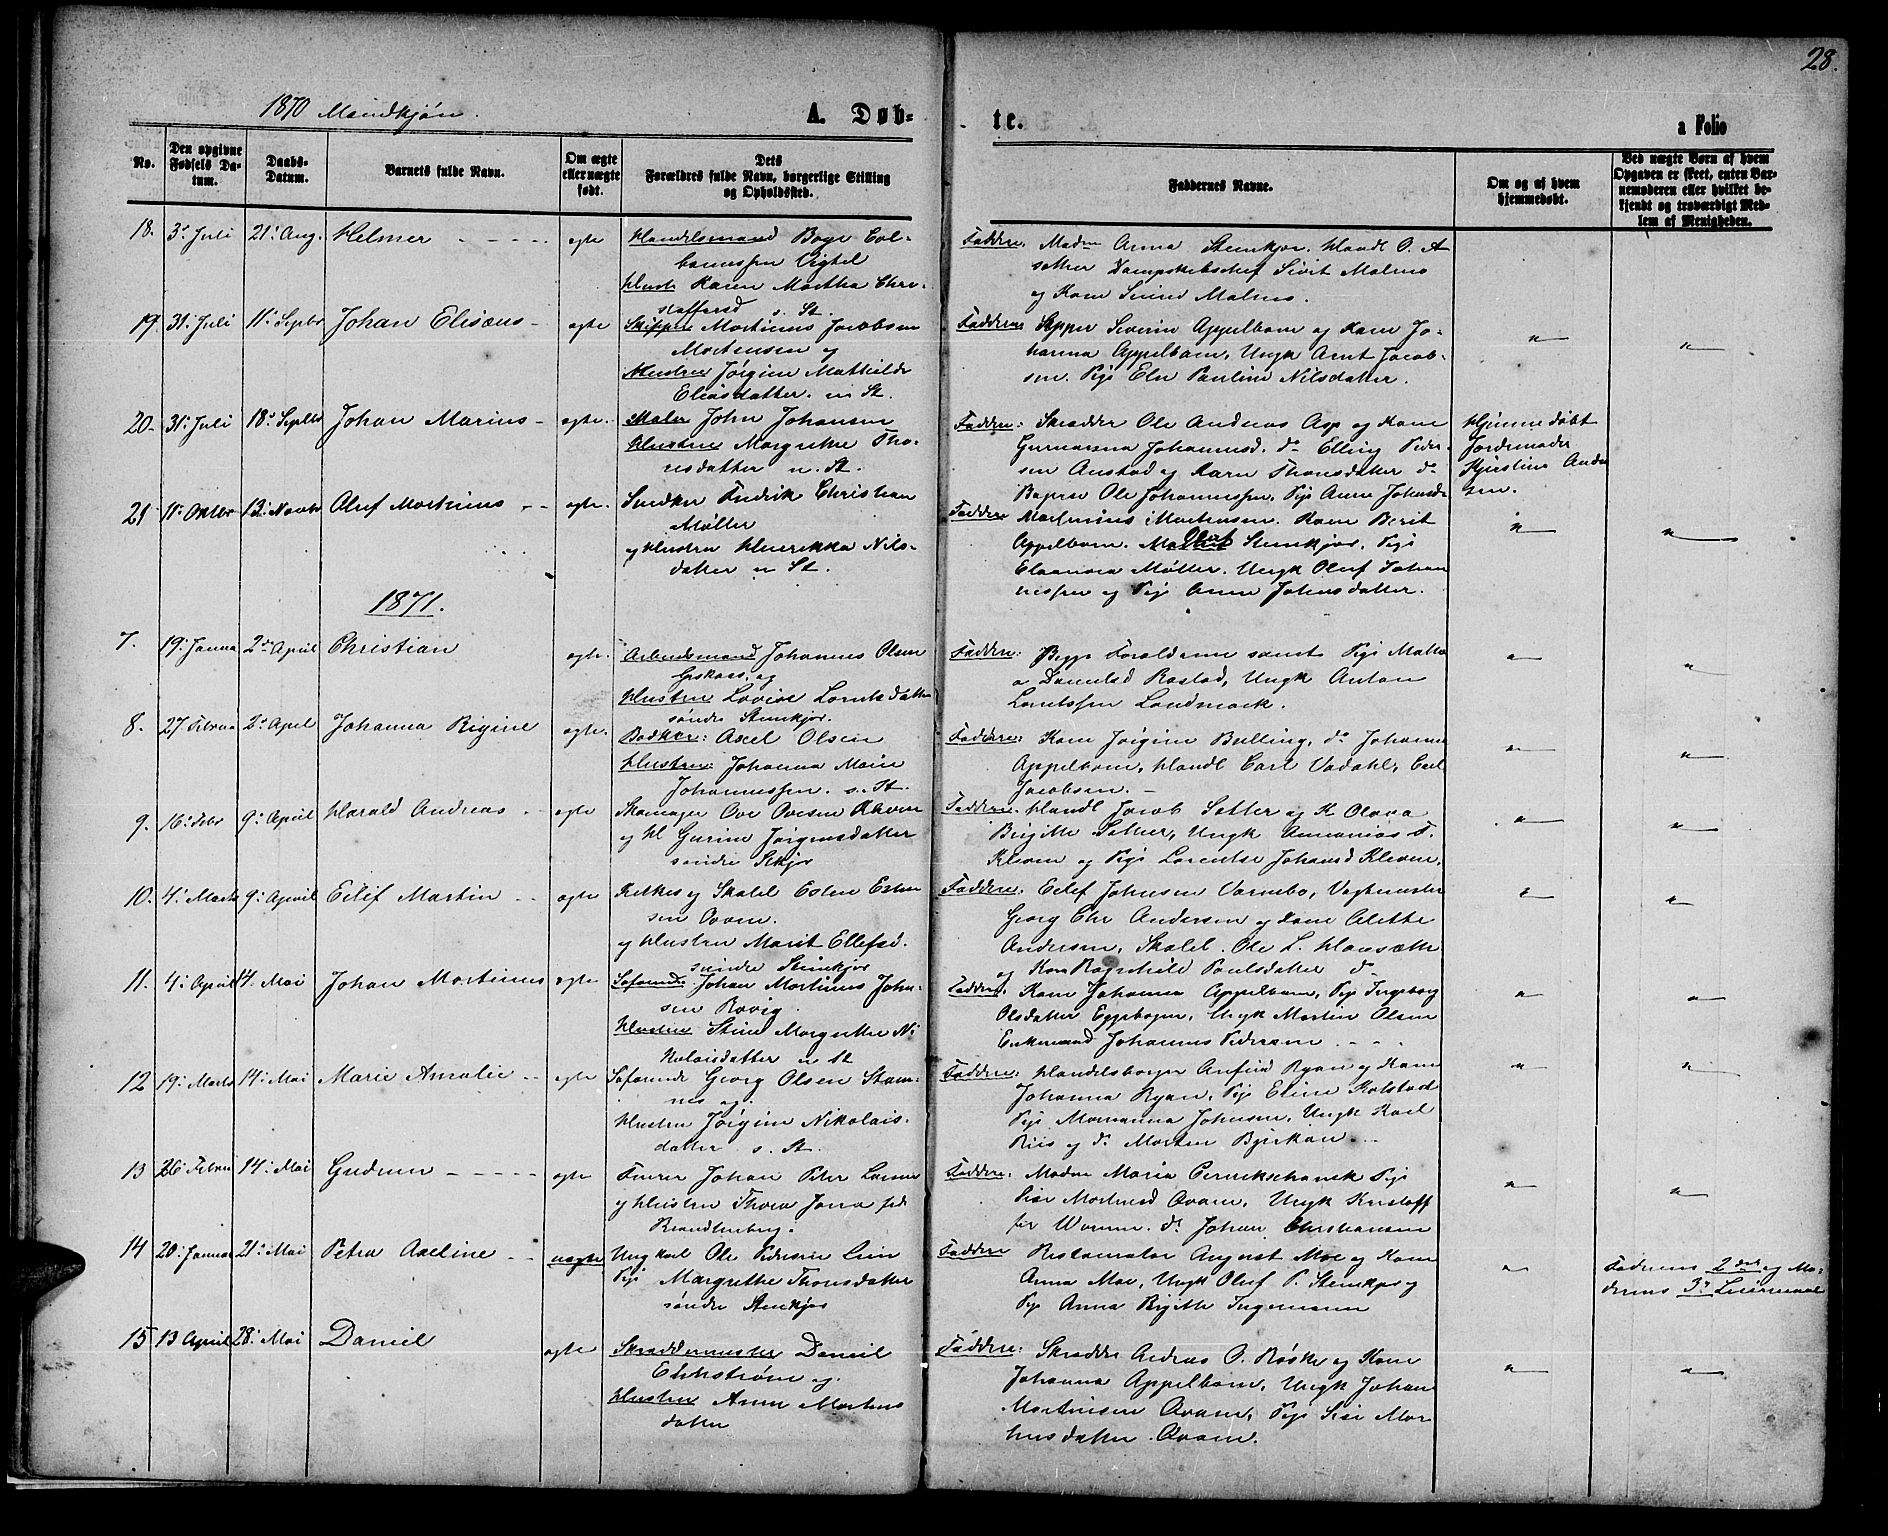 28.
1870 Mandkjøn.
A. Døb-
te.
a Folio
No.
Den opgivne Fødsels Datum.
Daabs-Datum.
Barnets fulde Navn.
Om ægte eller uægte født.
Dets Forældres fulde Navn, borgerlige Stilling og Opholdssted.
Faddernes Navne.
Om og af hvem hjemmedøbt.
Ved uægte Børn af hvem Opgaven er skeet, enten Barnemoderen eller hvilket bekjendt og troværdigt Medlem af Menigheden.
18. 3d Juli 21d Aug. Helmer - - - - ægte Handelsmand
Karen Martha Chri-
stoffersd s. St.
Faddere Anna Steinkjer, Handl O. A
og Kone Malmo.
19. 31d Juli 11d Septbr Johan Elisæus - ægte Skipper Martinus Jacobsen
Mortensen og
Hustru Jørgine Mathilde
Eliasdatter. n St.
Faddere Severin Appelbom og Kone Jo-
hanna Appelbom, Ungk Arnt Jacob-
sen. Pige Eline Pauline Nilsdatter.
20. 31d Juli 18d Septbr Johan Marius - ægte. Maler John Johansen
Hustru Margrethe Tho-
nesdatter n. St.
Faddere: Skrædder Ole Andreas Asp og Kone
Johannesd. do Elling Peder-
sen og Karen Thonsdatter do
Ole Johannessen, Pige Anne Johnsd
Hjemmedøbt
Jordemoder
Kjerstine Ander
sen.
21 11d Oktbr 13d Novbr Oluf Martinius - - ægte. Snedker Fredrik Christian
Møller
og Hustru Henrikka Nils-
datter n St.
Faddere Martinius Mortensen. Kone Berit
Appelbom. Oluf Steinkjer, Pige
Møller. Ungk Oluf Johan
nessen og Pige Anne Johnsdatter.
1871.
7. 19d Janua 2den April Christian ægte. Arbeidsmand Johannes Olsen
og
Hustru Lovise Lorntsdatter
søndre Steinkjer.
Faddere: Begge Forældrene samt Pige
Ungk Anton
Lorntssen Landmark.
8. 27 Februa 2d April Johanna Rigine ægte. Bødker: Axel Olsen
Hustru: Johanna Marie
Johannessen. s. St.
Faddere: Kone Jørgine Bulling, do Johanna
Appelbom, Handl Carl Vadahl, Carl
Jacobsen. -
9. 16d Febr 9d April Harald Andreas - ægte Skomager Ove Ovesen
og H Gurine Jørgensdatter
søndre Stkjer
Faddere. Handl Jacob Sæther og K Olava
Brigitte Sæther, Ungk Annanias T.
Kleven og Pige Lorentse Johansd Kleven.
10. 4d Marts 9d April Eilif Martin - - ægte Esten Esten
sen Qvam.
og Hustru Marit Ellefsd.
søndre Steinkjer
Faddere. Eilef Johnsen Varnebo, Vagtmester
Georg Chr Andersen og Kone Alette
Andersen, Skolel. Ole L.
og Kone Ragnhild Paulsdatter do
11. 4d April 14. Mai Johan Martinus ægte Søfarende: Johan Martinus John-
sen Rovig.
Hustru Stine Margrethe Ni
kolaisdatter n St
Faddere. Kone Johanna Appelbom, Pige Ingeborg
Olsdatter Eggebogen, Ungk Martin Olsen
Enkemand Johannes Pedersen - - -
12 19d Marts 14d Mai Marie Amalie - - ægte Søfarende Georg Olsen Stam-
nes og
Hustru Jørgine Nikolais.
datter s. St.
Faddere. Handelsborger Anfind Ryan og Kone
Johanna Ryan, Pige Eline Kolstad
Pige Marianna Johnsen, Ungk Karl
Riis og do Morten Bjerkan. - -
13 26d Februa 14d Mai Gudrun - - - - - ægte Johan Peter Larsen
og Hustru Thora Jona fød
Brandtenberg.
Faddere: Madm Maria Pige
Lise Martinesd Qvam, Ungk Kristoff
fer Wormm. do Johan Christiansen
14 20d Januar 21d Mai Petra Axeline - - uægte Ungkarl Ole Pedersen Lein
Pige Margrethe Thonsdatter
søndre Steinkjer
Faddere Restauratør August Moe og Kone
Anna Moe, Ungk Oluf P. Steinkjer og
Pige Anna Birgitte Ingemann
Faderens 2det og Mo-
derens 3d Leiermaal
15 13 April 28d Mai Daniel ægte Skræddermester Daniel
Ekkstrøm og
Hustru Anne Martins
datter
Faddere: Skrædder Andreas O. Røske og Kone
Johanna Appelbom, Ungk Johan
Martinsen Qvam, Pige Lise Mar
tinsdatter Qvam.